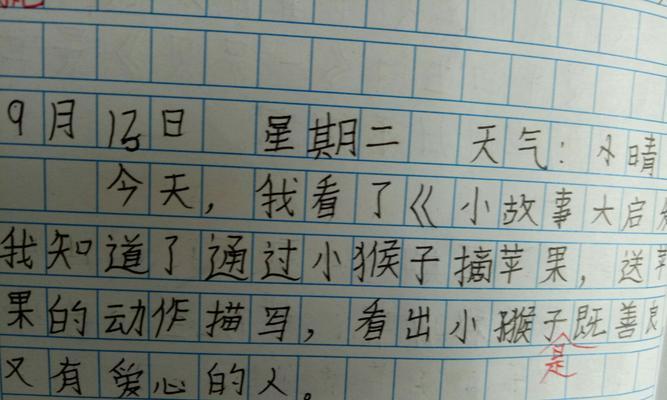 9月13日 星期二 天气：小晴
今天，我看了《小故事大启
我知道了通过小猴子摘苹果，送苹
果的动作描写，看出小猴子既善良
是
又有爱心的人。